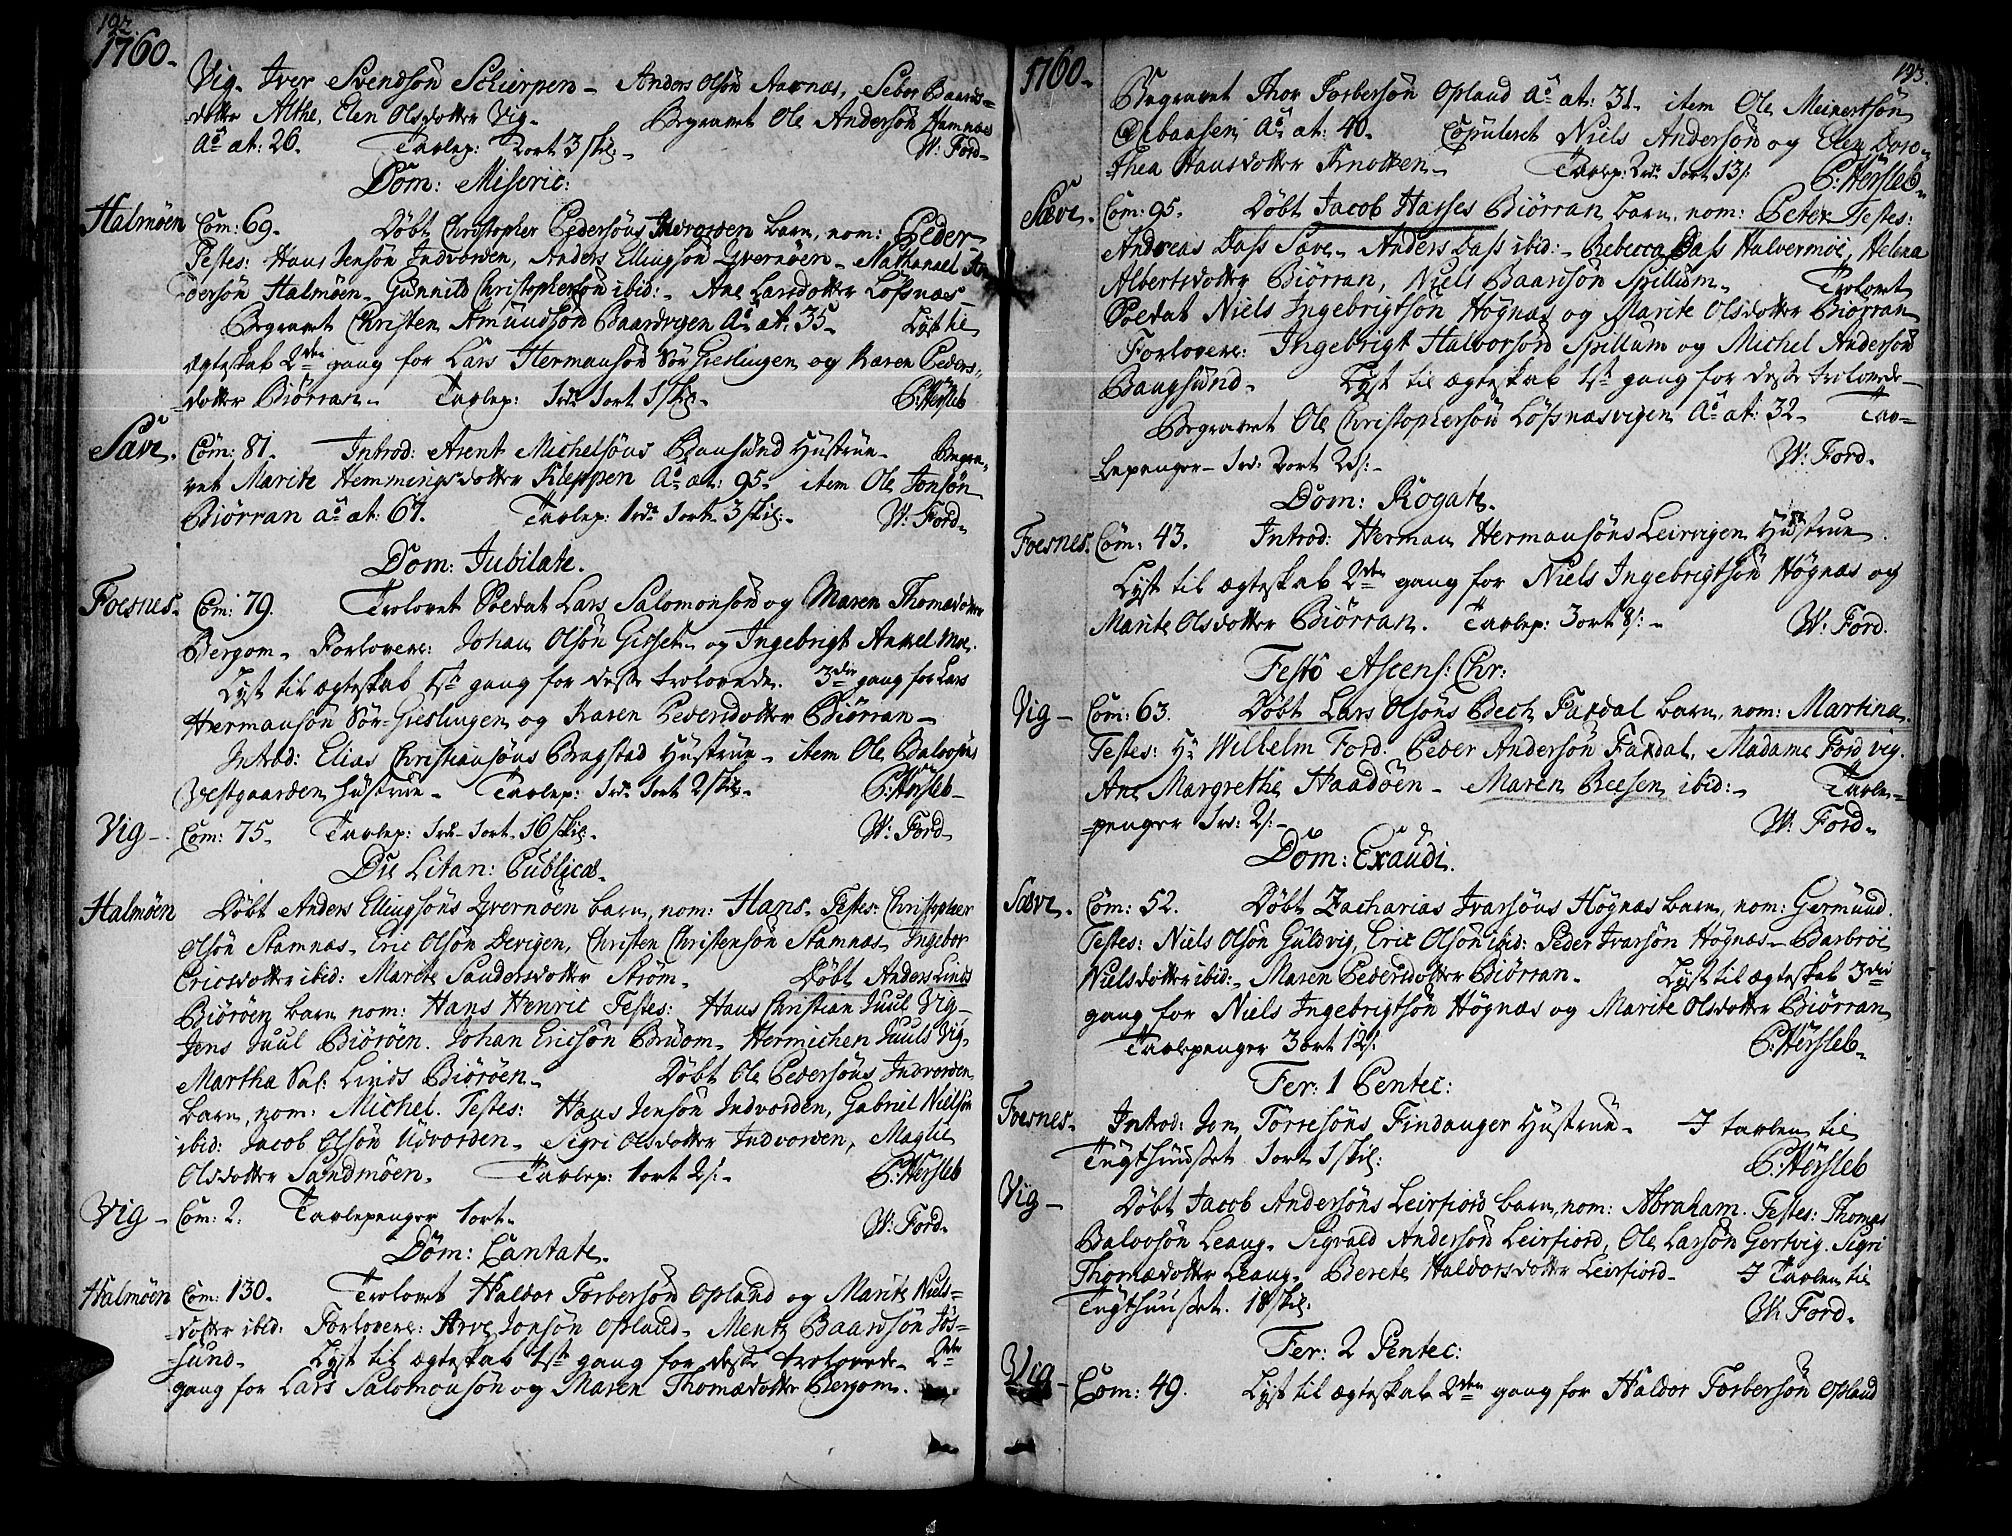 192.
1760.
Vig. Iver Svendsøn Schierpen - Anders Olsøn Aarnæs, Seber Baards=
dotter Althe, Elen Olsdotter Vig. Begravet Ole Andersøn Hamnæs
Aõ æt: 26. Tavlep: 2ort 3 skil: W: Ford.
Dom: Miseric:
Halmøen Com: 69. Døbt Christopher Pedersøns Indvorden barn, nom: Peder
Testes: Hans Jensøn Indvorden, Anders Ellingsøn Qvernøen - Nathanael An
dersøn Halmøen. Gunnild Christophersd ibid: Ane Larsdotter Løfsnæs
Begravet Christen Amundsøn Baardvigen Aõ æt: 35. Lyst til
ægteskab 2den gang for Lars Hermansøn Sør Gieslingen og Karen Peders=
dotter Biørran - Tavlep: 1rdr 1ort 1 skil. C: Hersleb
Sævi. Com: 81. Introd: Arent Michelsøns Bansund Hustrue - Begra=
vet Marite Hemmingsdotter Kleppen Aõ æt: 95. item Ole Jonsøn
Biørran aõ æt: 67. Tavlep: 1rdr 1ort 3 skil: W: Ford.
Dom: Jubilate.
Foesnes. Com: 79. Trolovet Soldat Lars Salomonsøn og Maren Thomædotter
Bergom. Forlovere: Johan Olsøn Gisset og Ingebrigt Axel Moe.
Lyst til ægteskab 1ste gang for desse trolovede. 3die gang for Lars
Hermansøn Sør-Gieslingen og Karen Pedersdotter Biørran -
Introd: Elias Christiansøns Bragstad Hustrue - item Ole Balvosøns
Vestgaarden Hustrue - Tavlep: 1rdr 1ort 2 skil. C: Hersleb -
Vig - Com: 75. Tavlep: 1rdr 1ort 16 skil. W: Ford.
Die Litan: Publicæ.
Halmøen Døbt Anders Ellingsøns Qvernøen barn, nom: Hans. Testes: Christopher
Olsøn Stamnæs. Eric Olsøn Devigen, Christen Christensøn Stamnæs. Ingebor
Ericsdotter ibid: Marite Sandersdotter Strøm. Døbt Anders Linds
Biørøen barn nom: Hans Henric Testes: Hans Christian Juul Vig -
Jens Juul Biørøen. Johan Ericsøn Brudom. Hermichen Juuls Vig.
Martha Sal: Linds Biørøen - Døbt Ole Pedersøns Indvorden
barn, nom: Michel. Testes: Hans Jensøn Indvorden, Gabriel Nielsøn
ibid: Jacob Olsøn Udvorden. Sigri Olsdotter Indvorden, Maglie
Olsdotter Sandmøen. Tavlep: 1ort 2s: C: Hersleb
Vig - Com: 2. Tavlepenger 1ort. W: Ford.
Dom: Cantate.
Halmøen Com: 130. Trolovet Haldor Torbersøn Opland og Marite Niels=
dotter ibid: Forlovere: Arve Jonsøn Opland. Mentz Baardsøn Jøs=
sund. Lyst til ægteskab 1ste gang for desse trolovede. 2den
gang for Lars Salomonsøn og Maren Thomædotter Bergom.
193.
1760.
Begravet Thor Torbersøn Opland Aõ æt: 31. item Ole Meinertsøn
Aõ æt: 40. Copuleret Niels Andersøn og Elen Doro=
thea Hansdotter Knotten. Tavlep: 2rdr 1ort 13s: C: Hersleb.
Sævi. Com: 95. Døbt Jacob Hasses Biørran barn, nom: Peter Testes:
Andreas Dass Sæve. Anders Dass ibid: Rebecca Dass Halvermøe, Helena
Albertsdotter Biørran, Niels Baarsøn Spillum. Trolovet
Soldat Niels Ingebrigtsøn Høgnæs og Marite Olsdotter Biørran
Forlovere: Ingebrigt Halvorsøn Spillum og Michel Andersøn
Bangsund. Lyst til ægteskab 1ste gang for desse trolovede
Begravet Ole Christophersøn Løfsnæsvigen Aõ æt: 32. Tav=
lepenger 1rd: 2ort 2s: W: Ford.
Dom: Rogate.
Foesnes. Com: 43. Introd: Herman Hermansøns Leirvigen Hustrue.
Lyst til ægteskab 2den gang for Niels Ingebrigtsøn Høgnæs og
Marite Olsdotter Biørran. Tavlep: 3ort 8s: W: Ford.
Festo Ascens: Chr:
Vig - Com: 63. Døbt Lars Olsøns Bech Fardal barn, nom: Martina.
Testes: Hr Wilhelm Ford. Peder Andersøn Fardal. Madame Ford Vig.
Ane Margrethe Haadøen - Maren Beesen ibid: Tavle=
penger 1rd: 2s: W: Ford.
Dom: Exaudi.
Sævi. Com: 52. Døbt Zacharias Ivarsøns Høgnæs barn, nom: Germund.
Testes: Niels Olsøn Guldvig, Eric Olsøn ibid: Peder Ivarsøn Høgnæs. Barbroe
Nielsdotter ibid: Maren Pedersdotter Biørran. Lyst til ægteskab 3die
gang for Niels Ingebrigtsøn Høgnæs og Marite Olsdotter Biørran
Tavlepenger 3ort 12s: C: Hersleb.
Fer: 1 Pentec:
Foesnes. Introd: Jon Torresøns Findanger Hustrue. I tavlen til
Tugthuuset 1ort 1 skil: C: Hersleb
Vig - Døbt Jacob Andersøns Leirfiord barn, nom: Abraham. Testes: Thomas
Balvosøn Leaug. Sigvald Andersøn Leirfiord, Ole Larsøn Gertvig. Sigri
Thomædotter Leaug. Berete Haldorsdotter Leirfiord. I Tavlen til
Tugthuuset. 18 skil: W: Ford.
Fer: 2 Pentec:
Vig - Com: 49. Lyst til ægteskab 2den gang for Haldor Torbersøn Opland